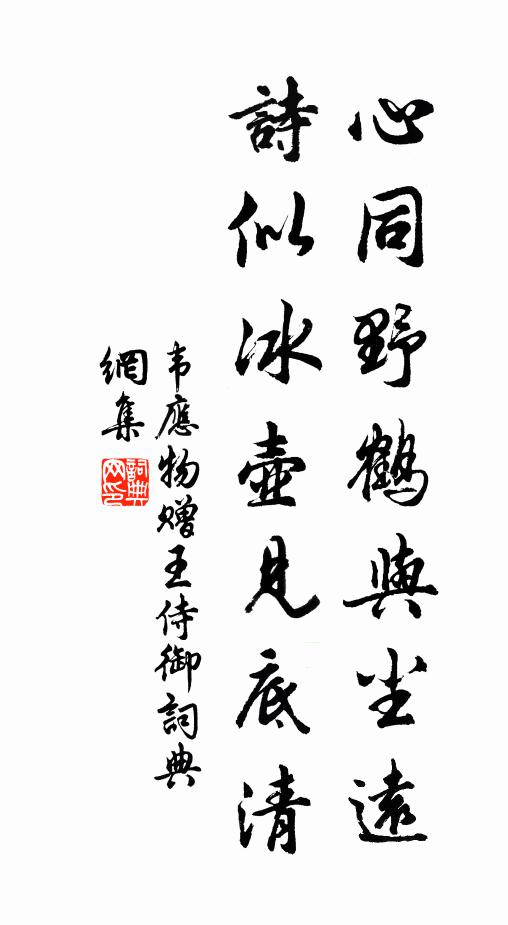 心同野鶴與尘遠
詩似冰壺見底清
韦應物赠王侍御詞典
網集
詞典网印